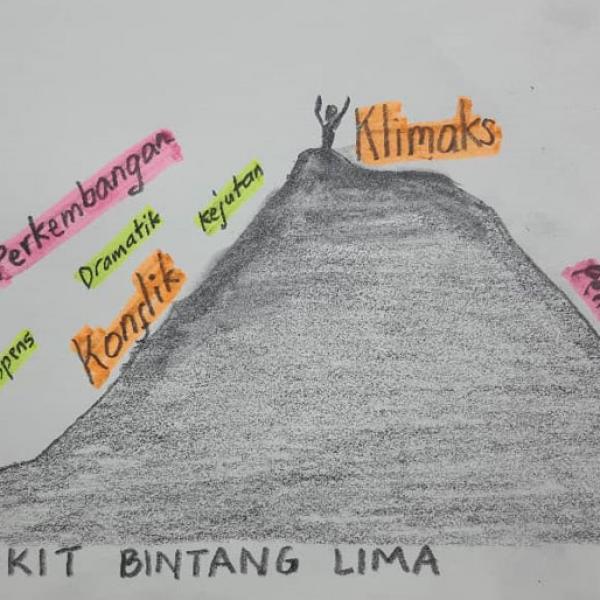 Klimaks
Perkembangan
Kejutan
Dramatik
Konflik
KIT BINTANG LIMA